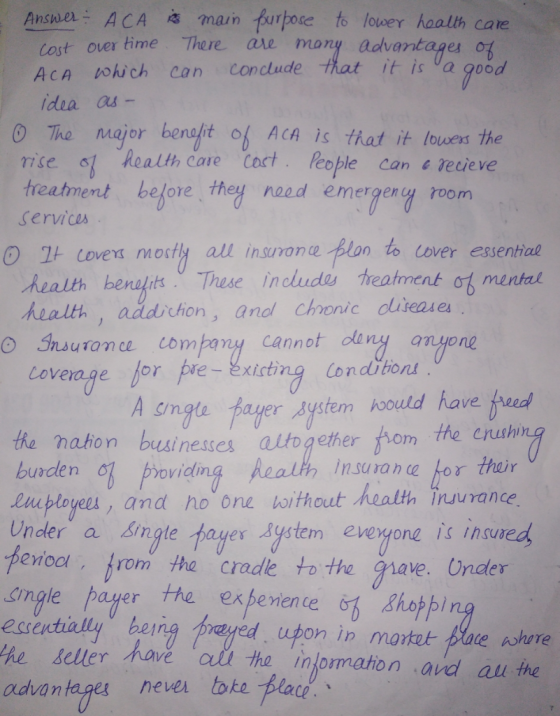 Answer :- ACA is main purpose to lower health care
cost over time. There are many advantages of
ACA which can conclude that it is a good
idea as -
⊙ The major benefit of ACA is that it lowers the
rise of health care cost. People can recieve
treatment before they need emergency room
services.
⊙ It covers mostly all insurance plan to cover essential
health benefits. These includes treatment of mental
health, addiction, and chronic diseases.
⊙ Insurance company cannot deny anyone
coverage for pre-existing conditions.
A single payer system would have freed
the nation businesses altogether from the crushing
burden of providing health insurance for their
employees, and no one without health insurance.
Under a single payer system everyone is insured,
period, from the cradle to the grave. Under
single payer the experience of shopping
essentially being preyed upon in market place where
the seller have all the information and all the
advantages never take place.